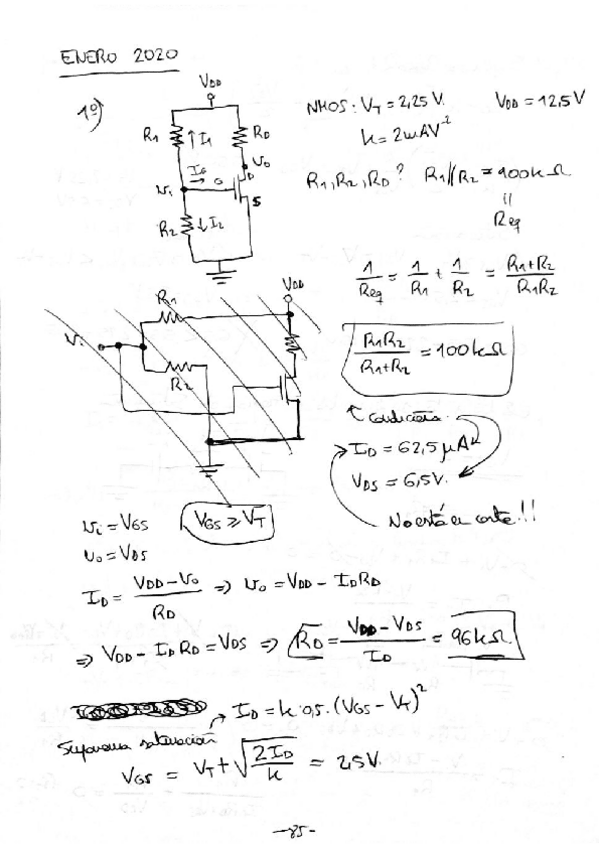 ENERO 2020
1º)
VDD
R1 I1 RD
IG 0 D vo
vi S
R2 I2
NMOS: VT = 2,25 V. VDD = 12,5V
k = 2mAV^-2
R1, R2, RD? R1//R2 = 100kΩ
||
Req
1/Req = 1/R1 + 1/R2 = (R1+R2)/(R1R2)
R1R2/(R1+R2) = 100kΩ
R1 VDD
Vi
R2
ID = 62,5 μA
VDS = 6,5V.
No está en corte!!!
vi = VGS VGS ≥ VT
vo = VDS
ID = (VDD - vo)/RD => vo = VDD - IDRD
=> VDD - IDRD = VDS => RD = (VDD - VDS)/ID = 96kΩ.
ID = k·0,5·(VGS - VT)²
Suponemos saturación
VGS = VT + √(2ID/k) = 2,5V.
-85-